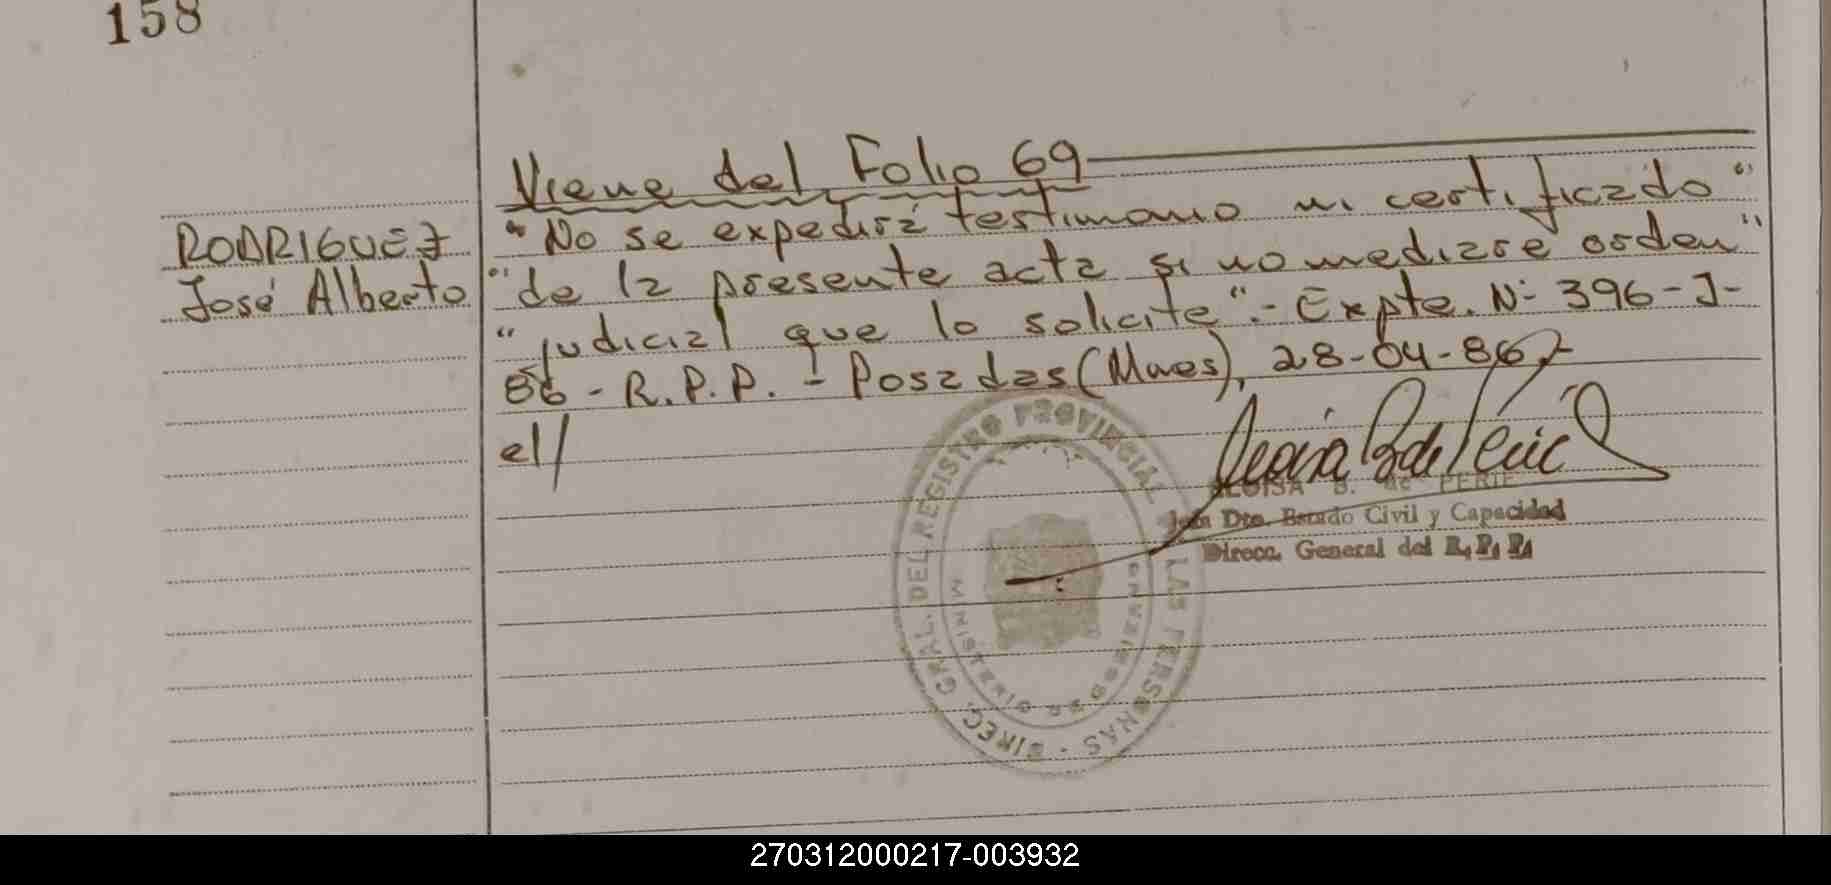 158
Viene del Folio 69
RODRIGUEZ
José Alberto
"No se expedirá testimonio ni certificado"
"de la presente acta si no mediare orden"
"judicial que lo solicite".- Expte. Nº 396-J-
86 - R.P.P. - Posadas (Mnes), 28-04-86.-
el/
ELOISA B. de PERIE
Jefa Dto. Estado Civil y Capacidad
Direcc. General del R.P.P.
DIREC. GRAL. DEL REGISTRO PROVINCIAL LAS PERSONAS
MINISTERIO DE GOBIERNO
270312000217-003932